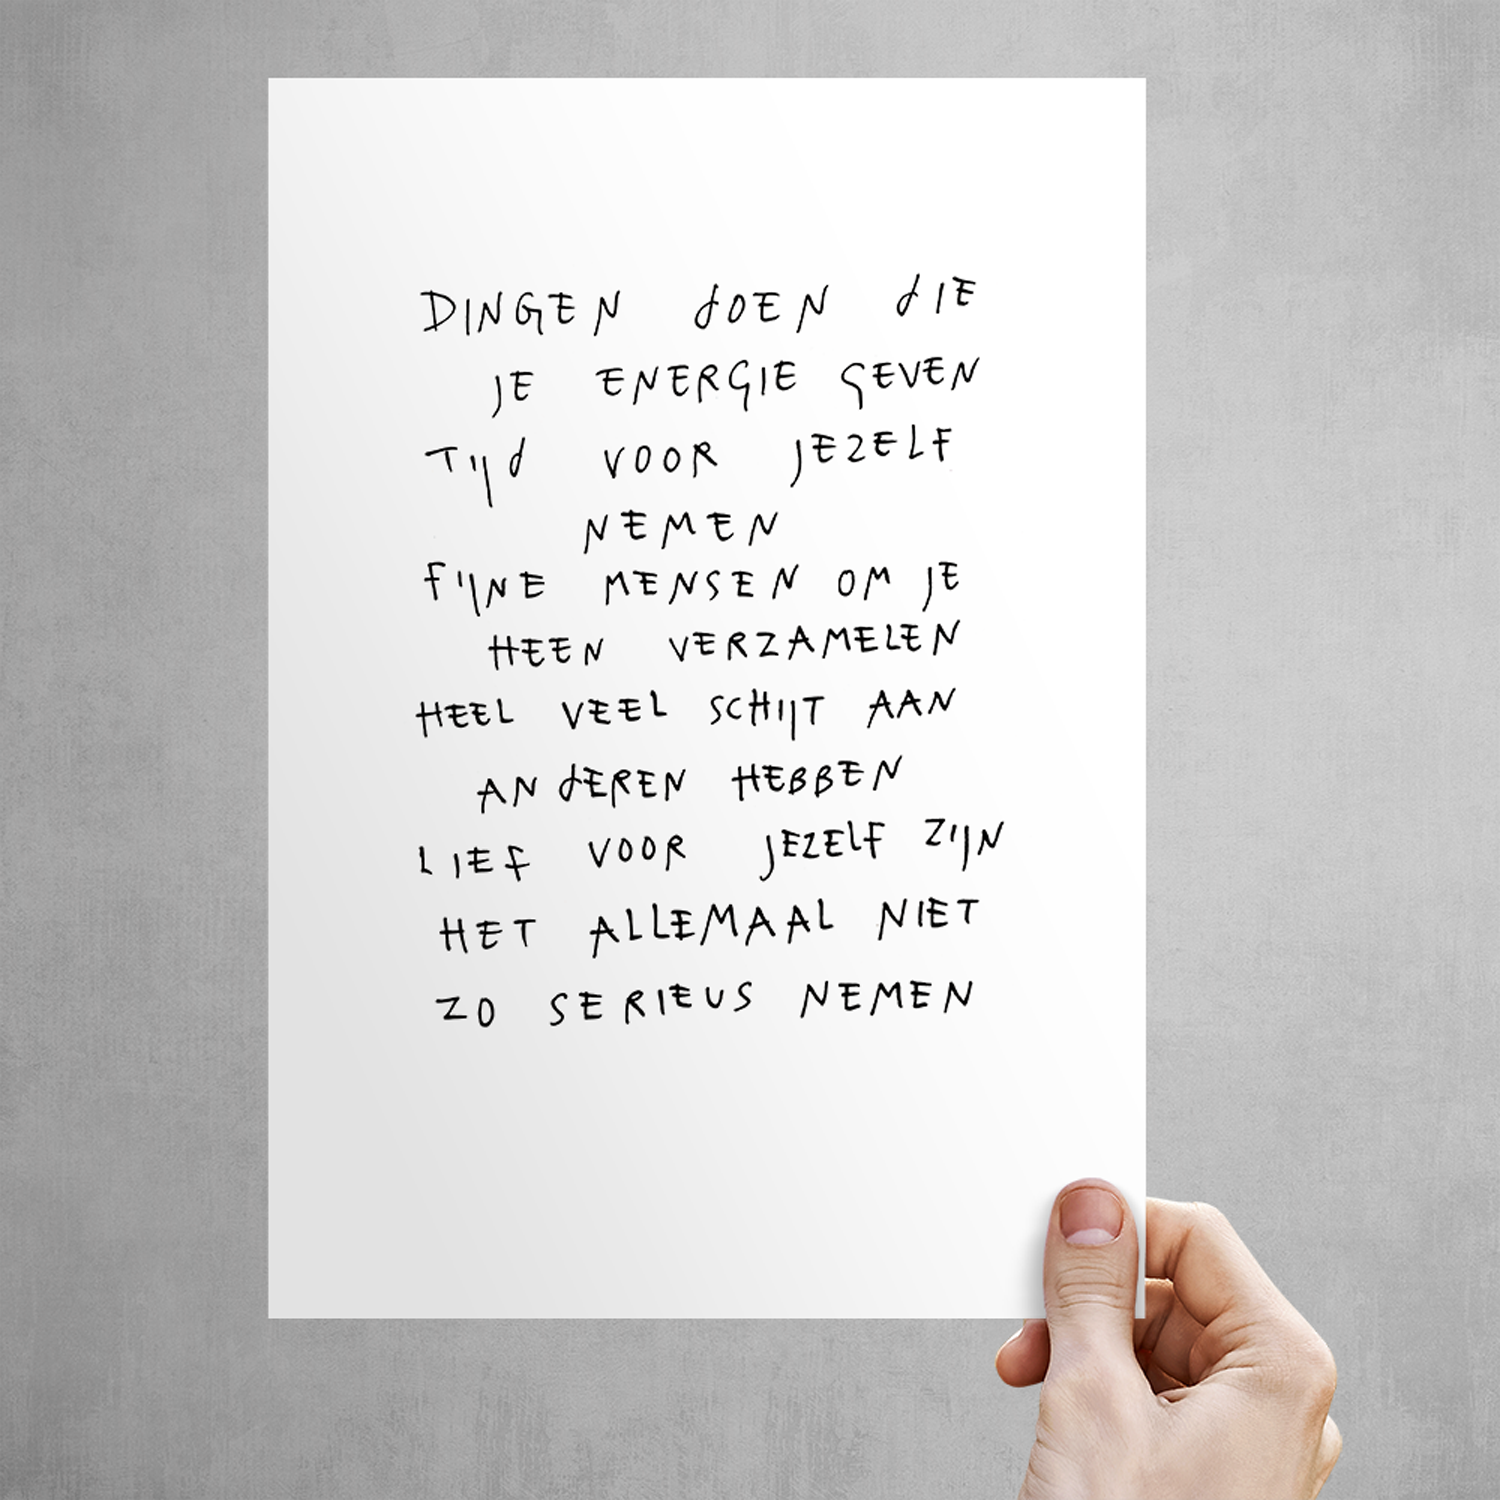 DINGEN dOEN dIE
JE ENERGIE GEVEN
TIJd VOOR JEZELF
NEMEN
FIJNE MENSEN OM JE
HEEN VERZAMELEN
HEEL VEEL SCHIJT AAN
ANdEREN HEBBEN
LIEF VOOR JEZELF ZIJN
HET ALLEMAAL NIET
ZO SERIEUS NEMEN